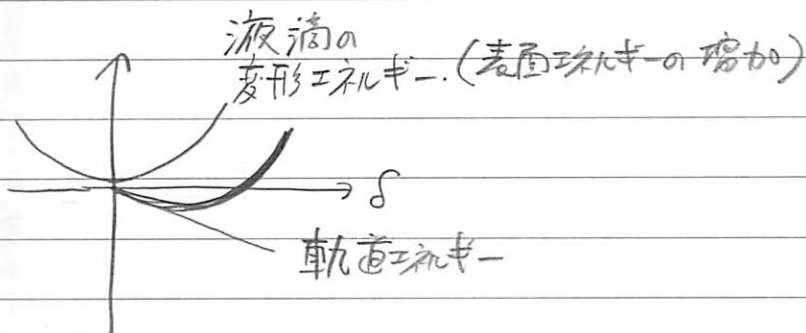 液滴の
変形エネルギー.(表面エネルギーの増加)
δ
軌道エネルギー